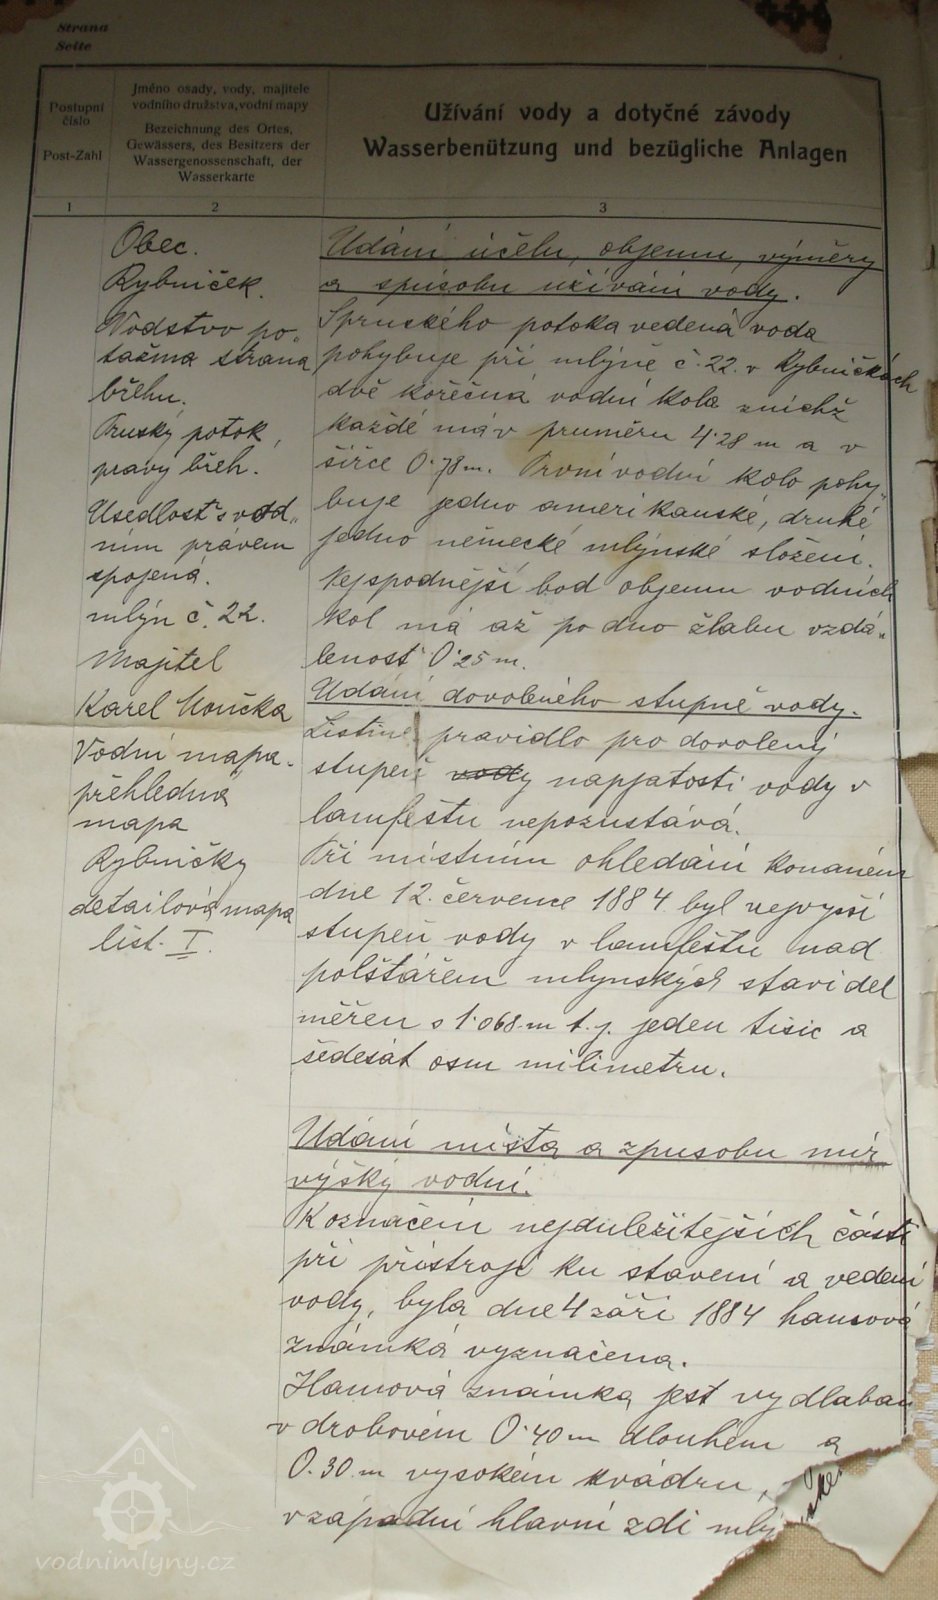 Strana
Seite
Postupní
číslo
Post-Zahl
Jméno osady, vody, majitele
vodního družstva, vodní mapy
Bezeichnung des Ortes,
Gewässers, des Besitzers der
Wassergenossenschaft, der
Wasserkarte
Užívání vody a dotyčné závody
Wasserbenützung und bezügliche Anlagen
1
2
3
Obec.
Rybníček.
Vodstvo po„
tažmo strana
břehu.
Pruský potok,
pravy břeh.
Usedlost s vod„
ním pravem
spojená.
mlýn č. 22.
Majitel
Karel Konička
Vodní mapa.
přehledna
mapa
Rybničky
detailová mapa
list. I.
Udání účelu, objemu, výměry
a spusobu užívání vody.
Spruského potoka vedená voda
pohybuje při mlýně č. 22. v Rybničkách
dvě korečná vodní kola znichž
každé má v pruměru 4·28 m a v
šířce 0·78 m. První vodní kolo pohy„
buje jedno amerikanské, druhé
jedno německé mlýnské složení.
Nejspodnější bod objemu vodních
kol má až po dno žlabu vzdá„
lenost 0·25 m.
Udání dovoleného stupně vody.
Listiné pravidlo pro dovolený
stupeň vody napjatosti vody v
lamfeštu nepozustává.
Při místním ohledání konaném
dne 12. července 1884 byl nejvyší
stupeň vody v lamfeštu nad
polštářem mlynských stavidel
měřen s 1·068 m t. j. jeden tisic a
šedesát osm milimetru.
Udání místa a zpusobu mír
výšky vodní.
K označení nejduležitějších částí
při přístroji ku stavení a vedení
vody, byla dne 4 září 1884 hamová
známká vyznačena.
Hamová známka jest vydlaban
v drobovém 0·40 m dlouhém a
0.30 m vysokém kvádru,
v západní hlavní zdi mlý
vodnimlyny.cz